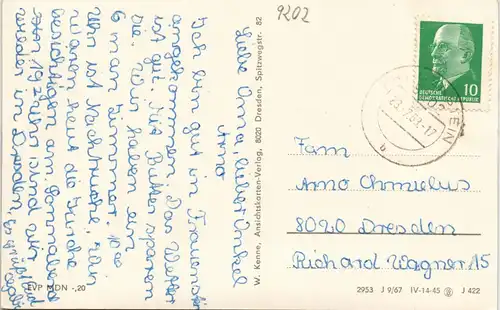 9202
Liebe Oma, lieber Onkel
Arno
Ich bin gut in Frauenstein
angekommen. Das Wetter
ist gut. Mit Butter sparen
die. Wir haben ein
6 man Zimmer. 10 00
Uhr ist Nachtruhe. Wir
waren heut die Kirche
besichtigen am Sonnabend
Uhr sind wir
wieder in Dresden. Es grüßt
EVP MDN -,20
W. Kenne, Ansichtskarten-Verlag, 8020 Dresden, Spitzwegstr. 82
DEUTSCHE
DEMOKRATISCHE REPUBLIK
10
-17
b
Fam
Arno Chmelus
8020 Dresden
Richard Wagner 15
2953 J 9/67 IV-14-45 J 422